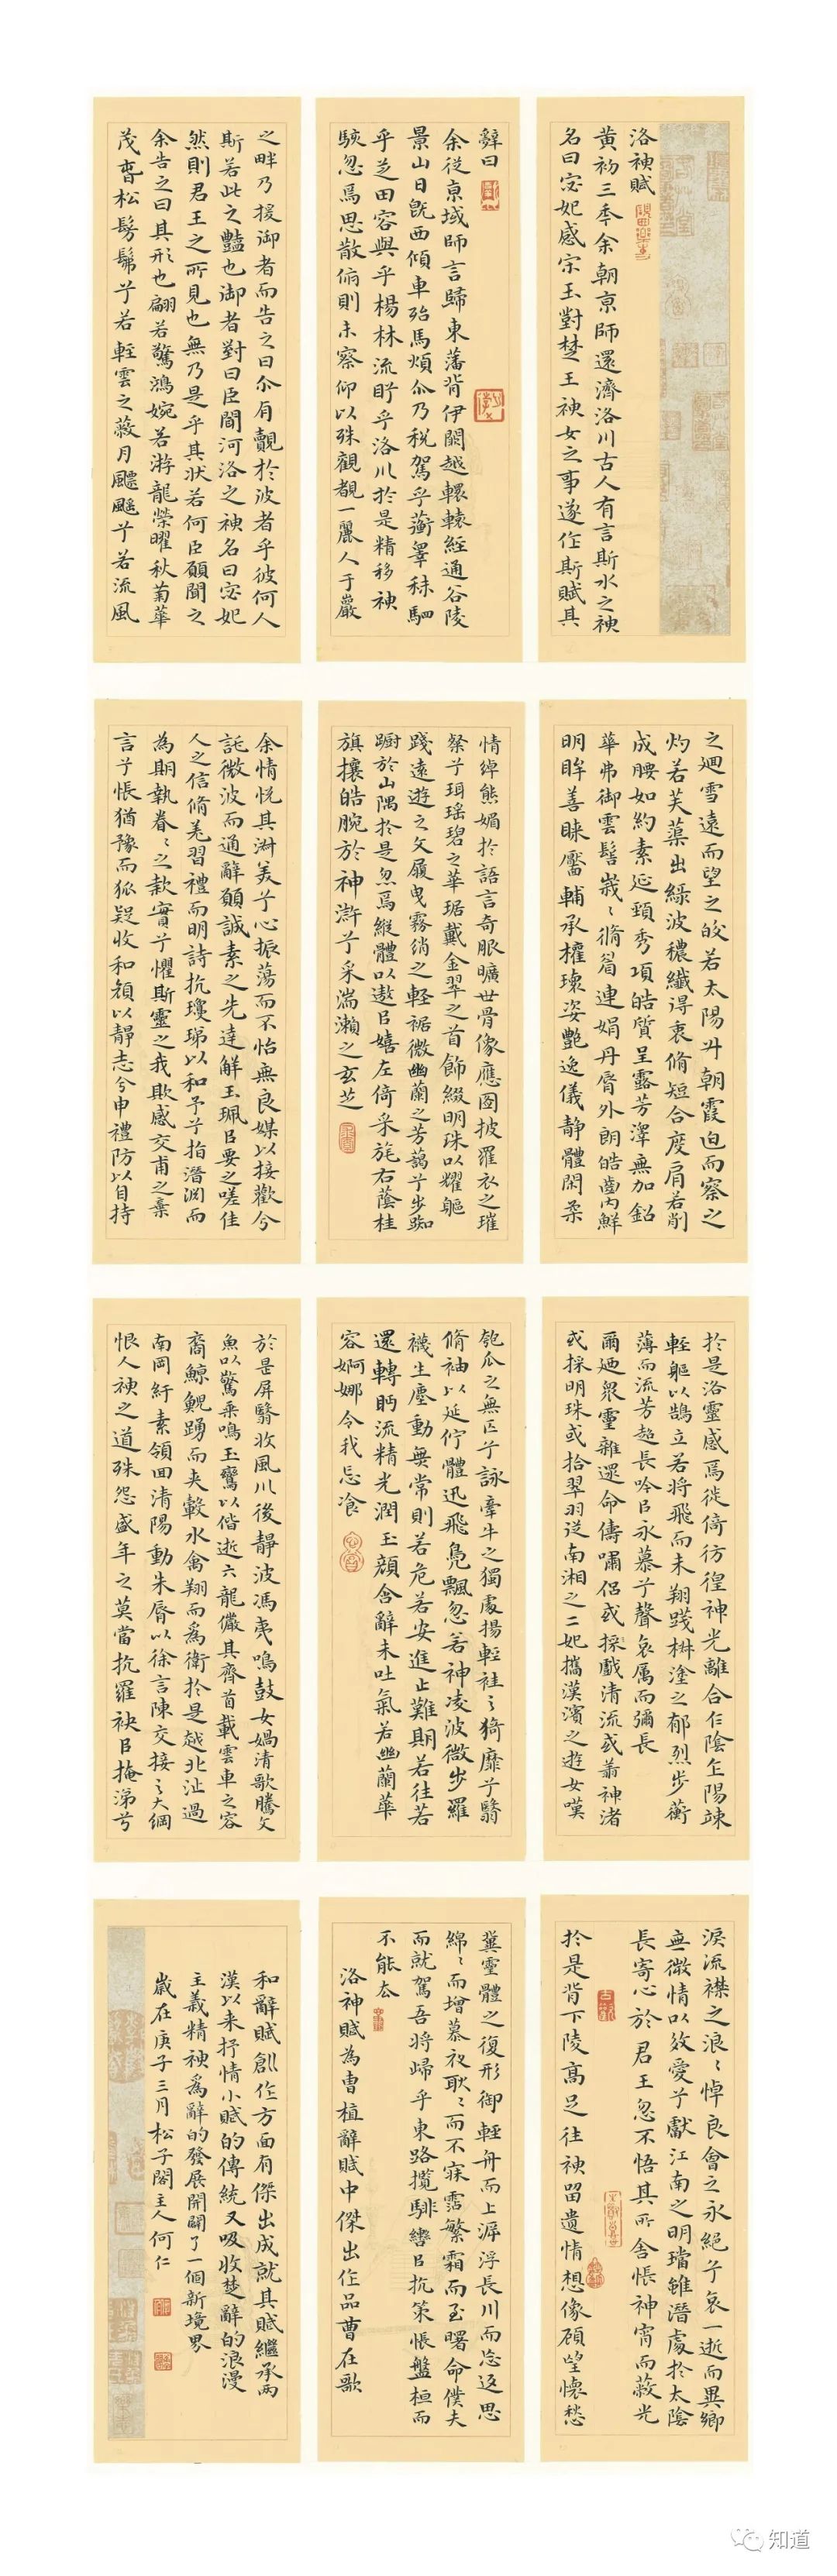 洛神賦
黄初三年余朝京師還濟洛川古人有言斯水之神
名曰宓妃感宋玉對楚王神女之事遂作斯賦其
辭曰
余從京域師言歸東藩背伊闕越轘轅經通谷陵
景山日既西傾車殆馬煩尒乃稅駕乎蘅睪秣駟
乎芝田容與乎楊林流盱乎洛川於是精移神
駭忽焉思散俯則未察仰以殊觀覩一麗人于巖
之畔乃援御者而告之曰尒有覿於彼者乎彼何人
斯若此之豔也御者對曰臣聞河洛之神名曰宓妃
然則君王之所見也無乃是乎其狀若何臣願聞之
余告之曰其形也翩若驚鴻婉若游龍榮曜秋菊華
茂春松髣髴兮若輕雲之蔽月飄颻兮若流風
之迴雪遠而望之皎若太陽升朝霞迫而察之
灼若芙蕖出綠波穠纖得衷脩短合度肩若削
成腰如約素延頸秀項皓質呈露芳澤無加鉛
華弗御雲髻峩〻脩眉連娟丹脣外朗皓齒内鮮
明眸善睞靨輔承權瓌姿艷逸儀静體閑柔
情綽態媚於語言奇服曠世骨像應圖披羅衣之璀
粲兮珥瑶碧之華琚戴金翠之首飾綴明珠以耀軀
踐遠遊之文履曳霧綃之輕裾微幽蘭之芳藹兮步踟
蹰於山隅於是忽焉縱體以遨㠯嬉左倚采旄右蔭桂
旗攘皓腕於神滸兮采湍瀨之玄芝
余情悅其淑美兮心振蕩而不怡無良媒以接歡兮
託微波而通辭願誠素之先達解玉珮㠯要之嗟佳
人之信脩羌習禮而明詩抗瓊珶以和予兮指潛淵而
為期執眷〻之款實兮懼斯靈之我欺感交甫之棄
言兮悵猶豫而狐疑收和顏以靜志兮申禮防以自持
於是洛靈感焉徙倚彷徨神光離合乍陰乍陽竦
輕軀以鶴立若将飛而未翔踐椒塗之郁烈步蘅
薄而流芳超長吟㠯永慕兮聲哀厲而彌長
爾迺眾靈雜還命儔嘯侶或採戲清流或翥神渚
或採明珠或拾翠羽從南湘之二妃攜漢濱之遊女嘆
匏瓜之無匹兮詠牽牛之獨處揚輕袿之猗靡兮翳
脩袖以延佇體迅飛鳧飄忽若神凌波微步羅
襪生塵動無常則若危若安進止難期若往若
還轉眄流精光潤玉顏含辭未吐氣若幽蘭華
容婀娜令我忘飡
於是屏翳收風川後靜波馮夷鳴鼓女媧清歌騰文
魚以驚乘鳴玉鸞以偕逝六龍儼其齊首載雲車之容
裔鯨鯢踴而夹轂水禽翔而為衛於是越北沚過
南岡紆素領回清陽動朱脣以徐言陳交接之大綱
恨人神之道殊怨盛年之莫當抗羅袂㠯掩涕兮
淚流襟之浪〻悼良會之永絕兮哀一逝而異鄉
無微情以效愛兮獻江南之明璫雖潛處於太陰
長寄心於君王忽不悟其所舍悵神宵而蔽光
於是背下陵高足往神留遺情想像顧望懷愁
冀靈體之復形御輕舟而上泝浮長川而忘返思
綿〻而增慕夜耿〻而不寐霑繁霜而至曙命僕夫
而就駕吾将歸乎東路攬騑轡㠯抗策悵盤桓而
不能去
洛神賦為曹植辭賦中傑出作品曹在歌
和辭賦創作方面有傑出成就其賦繼承两
漢以来抒情小賦的傳統又吸收楚辭的浪漫
主義精神為辭的發展開闢了一個新境界
歲在庚子三月松子閣主人何仁
知道